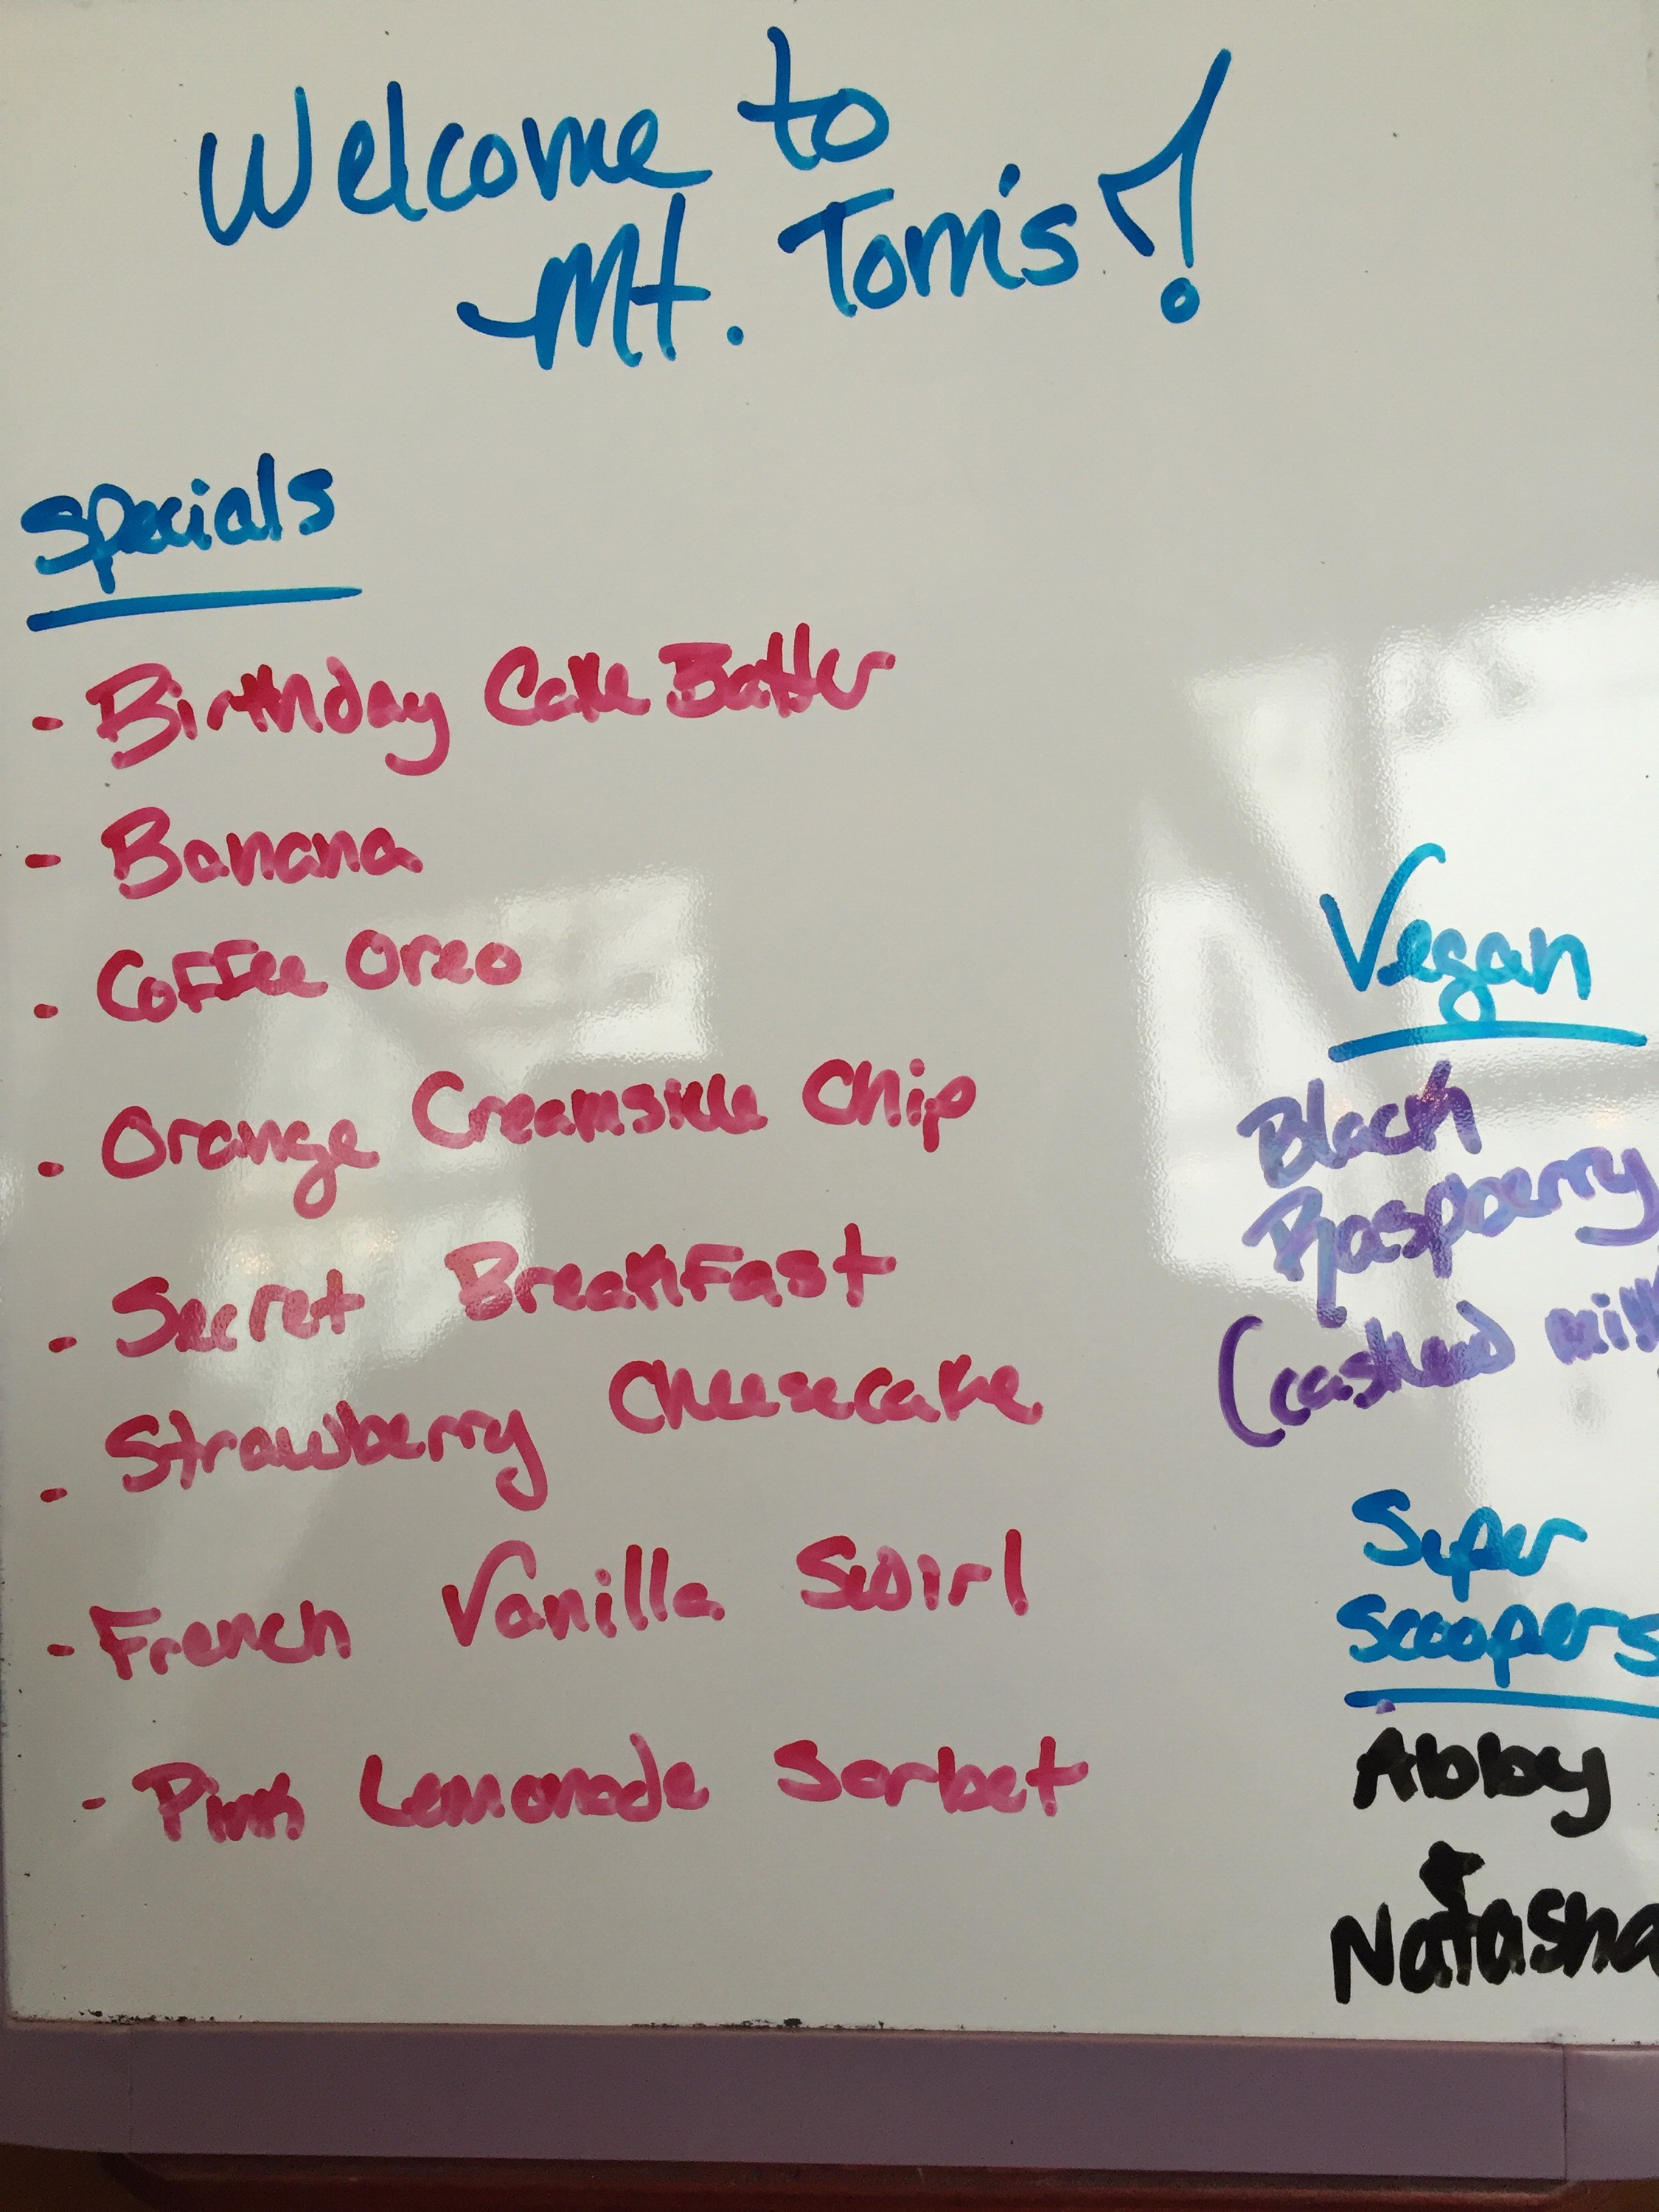 Welcome to
Mt. Tom's!
Specials
- Birthday Cake Batter
- Banana
- Coffee Oreo
- Orange Creamsicle Chip
- Secret Breakfast
- Strawberry Cheesecake
- French Vanilla Swirl
- Pink Lemonade Sorbet
Vegan
Black
Raspberry
(cashew milk
Super
Scoopers
Abby
+
Natasha